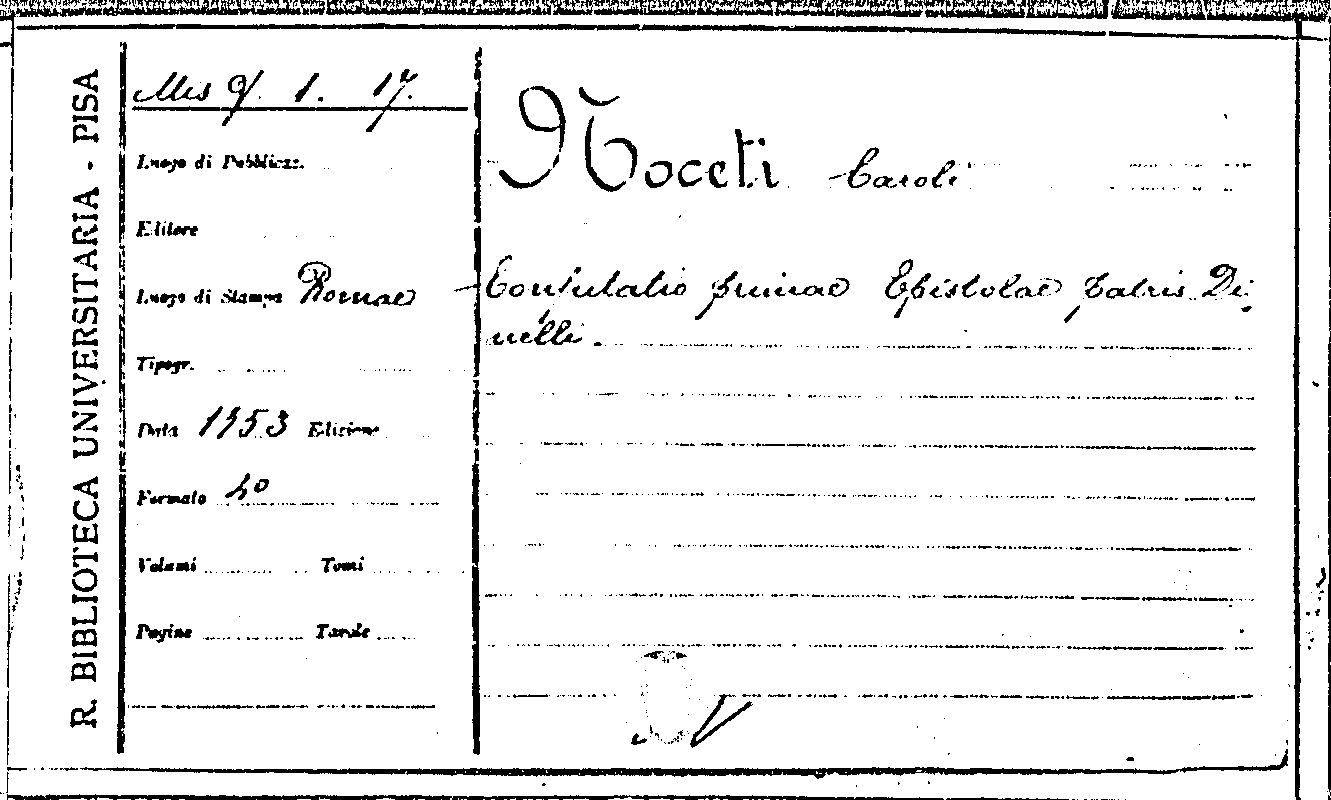 R. BIBLIOTECA UNIVERSITARIA - PISA
Mis 9. 1. 17.
Luogo di Pubblicaz.
Editore
Luogo di Stampa Romae
Tipogr.
Data 1753 Edizione
Formato 4º
Volumi Tomi
Pagine Tavole
Noceti Caroli
Confutatio primae Epistolae patris Di
nelli.